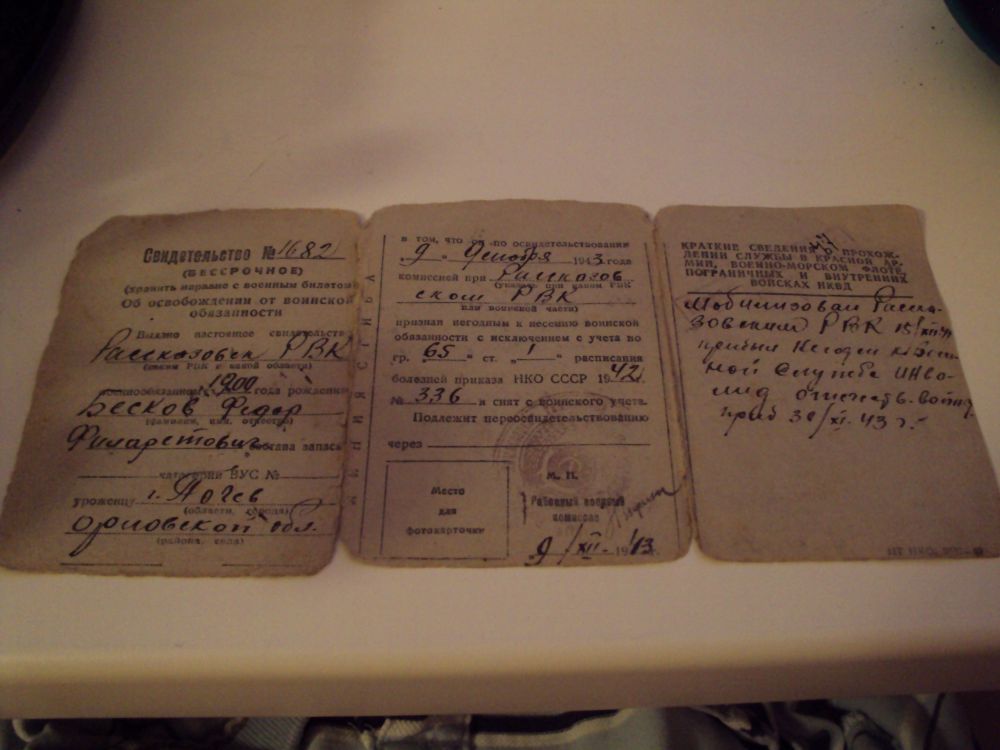 Свидетельство № 1682
(БЕССРОЧНОЕ)
(хранить наравне с военным билетом)
Об освобождении от воинской
обязанности
Выдано настоящее свидетельство
Рассказовск РВК
(каким РВК и какой области)
военнообязанному 1900 года рождения
Бесков Федор
(фамилия, имя, отчество)
Филаретович состава запаса
категории ВУС №
уроженцу г. Почеп
(области, города)
Орловской обл.
(района, села)
в том, что он по освидетельствовании
9 декабря 1943 года
комиссией при Рассказов
(указать при каком РВК
ском РВК
или воинской части)
признан негодным к несению воинской
обязанности с исключением с учета по
гр. „65“ ст. „1“ расписания
болезней приказа НКО СССР 1942 г.
№ 336 и снят с воинского учета.
Подлежит переосвидетельствованию
через
Место
для
фотокарточки
М. П.
Районный военный
комиссар
9/XII 1943
КРАТКИЕ СВЕДЕНИЯ О ПРОХОЖ-
ДЕНИИ СЛУЖБЫ В КРАСНОЙ АР-
МИИ, ВОЕННО-МОРСКОМ ФЛОТЕ,
ПОГРАНИЧНЫХ И ВНУТРЕННИХ
ВОЙСКАХ НКВД
Мобилизован Расска-
зовским РВК 15/XII
признан негоден к воен-
ной службе инва-
лид отечеств. войны
30/XI 43 г.